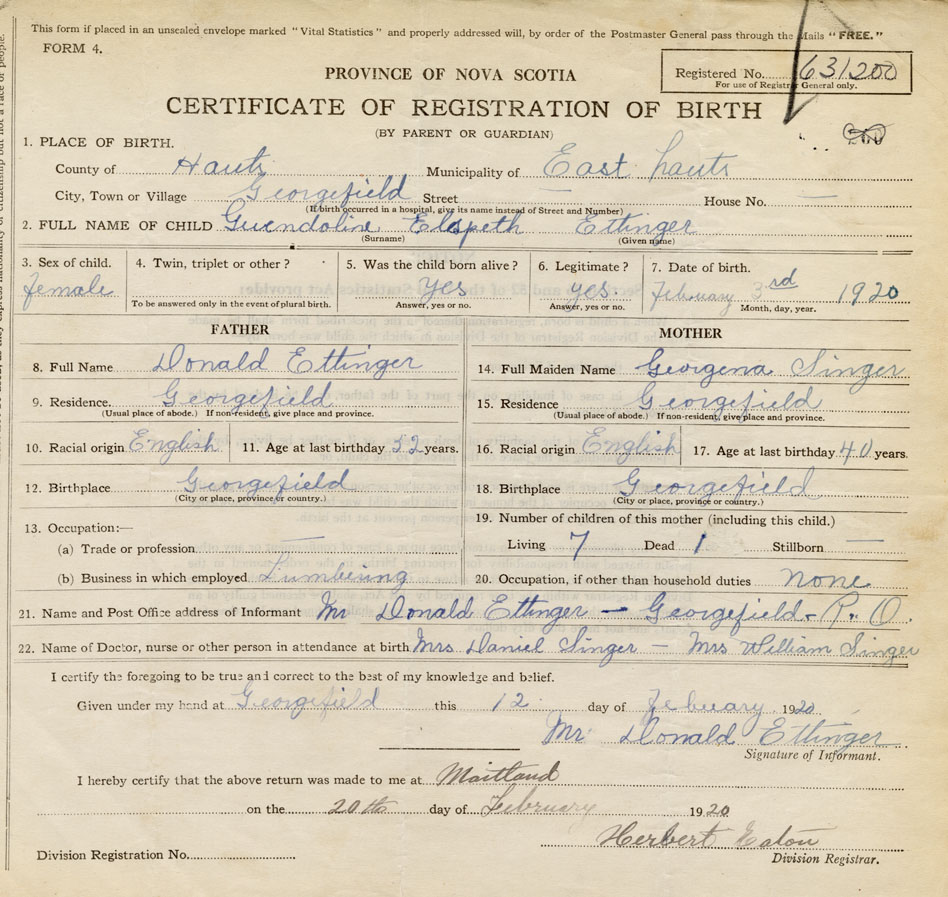 This form if placed in an unsealed envelope marked "Vital Statistics" and properly addressed will, by order of the Postmaster General pass through the Mails "FREE."
FORM 4.
PROVINCE OF NOVA SCOTIA
Registered No. 631200
For use of Registrar General only.
CERTIFICATE OF REGISTRATION OF BIRTH
(BY PARENT OR GUARDIAN)
1. PLACE OF BIRTH.
County of Hants Municipality of East hants
City, Town or Village Georgefield Street — House No. —
(If birth occurred in a hospital, give its name instead of Street and Number)
2. FULL NAME OF CHILD Gwendoline Elspeth Ettinger
(Surname) (Given name)
3. Sex of child. 4. Twin, triplet or other? 5. Was the child born alive? 6. Legitimate? 7. Date of birth.
female Yes yes February 3rd 1920
To be answered only in the event of plural birth. Answer, yes or no. Answer, yes or no. Month, day, year.
FATHER MOTHER
8. Full Name Donald Ettinger 14. Full Maiden Name Georgena Singer
9. Residence. Georgefield 15. Residence Georgefield
(Usual place of abode.) If non-resident, give place and province. (Usual place of abode.) If non-resident, give place and province.
10. Racial origin English 11. Age at last birthday 52 years. 16. Racial origin English 17. Age at last birthday 40 years.
12. Birthplace Georgefield 18. Birthplace Georgefield
(City or place, province or country.) (City or place, province or country.)
13. Occupation:— 19. Number of children of this mother (including this child.)
(a) Trade or profession — Living 7 Dead 1 Stillborn —
(b) Business in which employed Lumbering 20. Occupation, if other than household duties none
21. Name and Post Office address of Informant Mr Donald Ettinger — Georgefield. P. O.
22. Name of Doctor, nurse or other person in attendance at birth Mrs Daniel Singer — Mrs William Singer
I certify the foregoing to be true and correct to the best of my knowledge and belief.
Given under my hand at Georgefield this 12 day of February 1920
Mr Donald Ettinger
Signature of Informant.
I hereby certify that the above return was made to me at Maitland
on the 20th day of February 1920
Herbert Eaton
Division Registration No. Division Registrar.